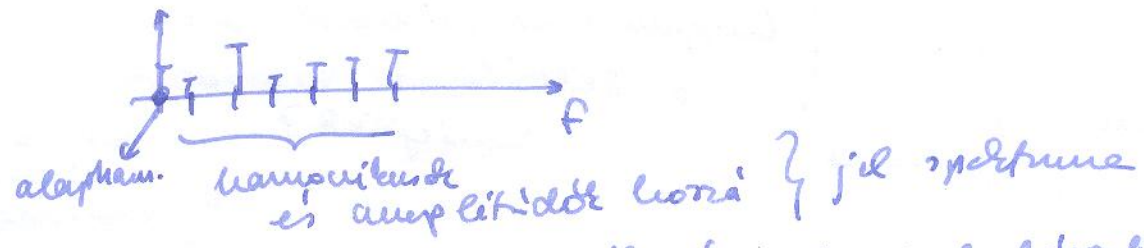 f
alapharm. harmonikusok
és amplitúdók hozzá } jel spektruma